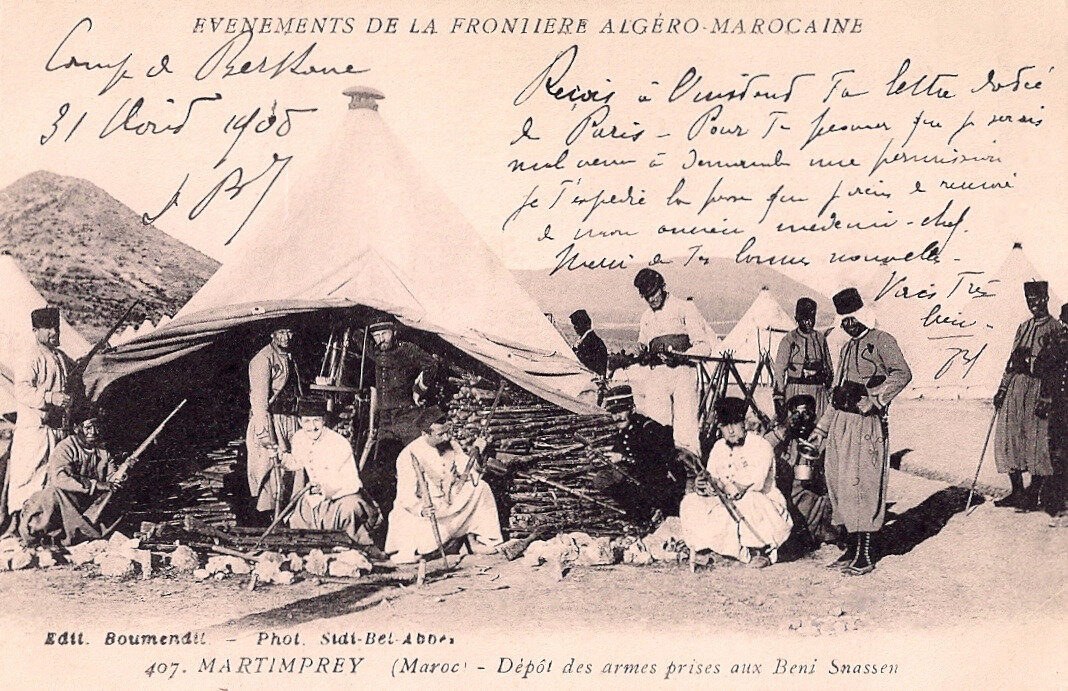 EVENEMENTS DE LA FRONTIERE ALGÉRO-MAROCAINE
Camp de Berkane
31 Août 190
Reçois à ta lettre datée
de Paris - Pour te prouver que je serais
mal venu à demander une permission
je t'expédie la que je viens de recevoir
de mon ancien médecin-chef.
Merci de tes bonnes nouvelles -
Vais Très
bien -
Edit. Boumendil. - Phot. Sidi-Bel-Abbès
407. MARTIMPREY (Maroc) - Dépôt des armes prises aux Beni Snassen